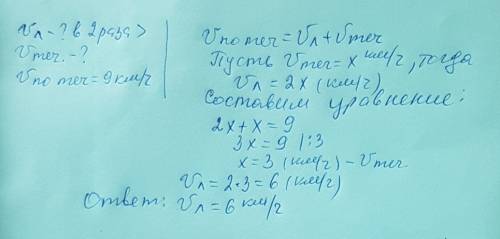 vл - ? в 2 раза >
vтеч. - ?
vпо теч = 9 км/ч
vпо теч = vл + vтеч
Пусть vтеч = x км/ч, тогда
vл = 2x (км/ч)
Составим уравнение:
2x + x = 9
3x = 9 | :3
x = 3 (км/ч) - vтеч
vл = 2•3 = 6 (км/ч)
Ответ: vл = 6 км/ч